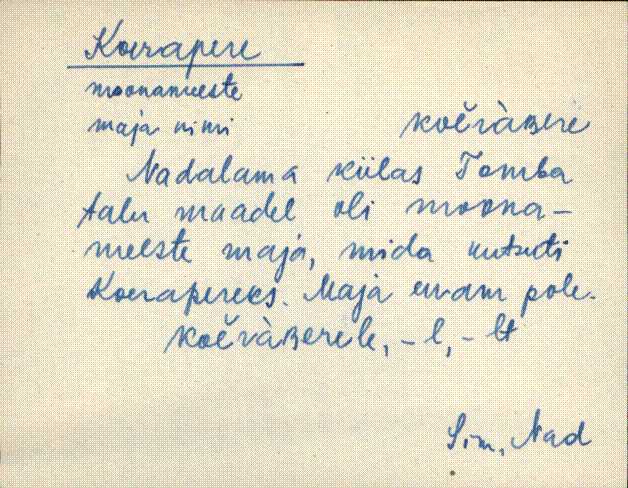 Koerapere
moonameeste
maja nimi
koĕràʙere
Nadalama külas Tomba
talu maadel oli moona-
meeste maja, mida kutsuti
Koerapereks. Maja enam pole.
koĕràʙerele, -l, -lt
Sim, Nad